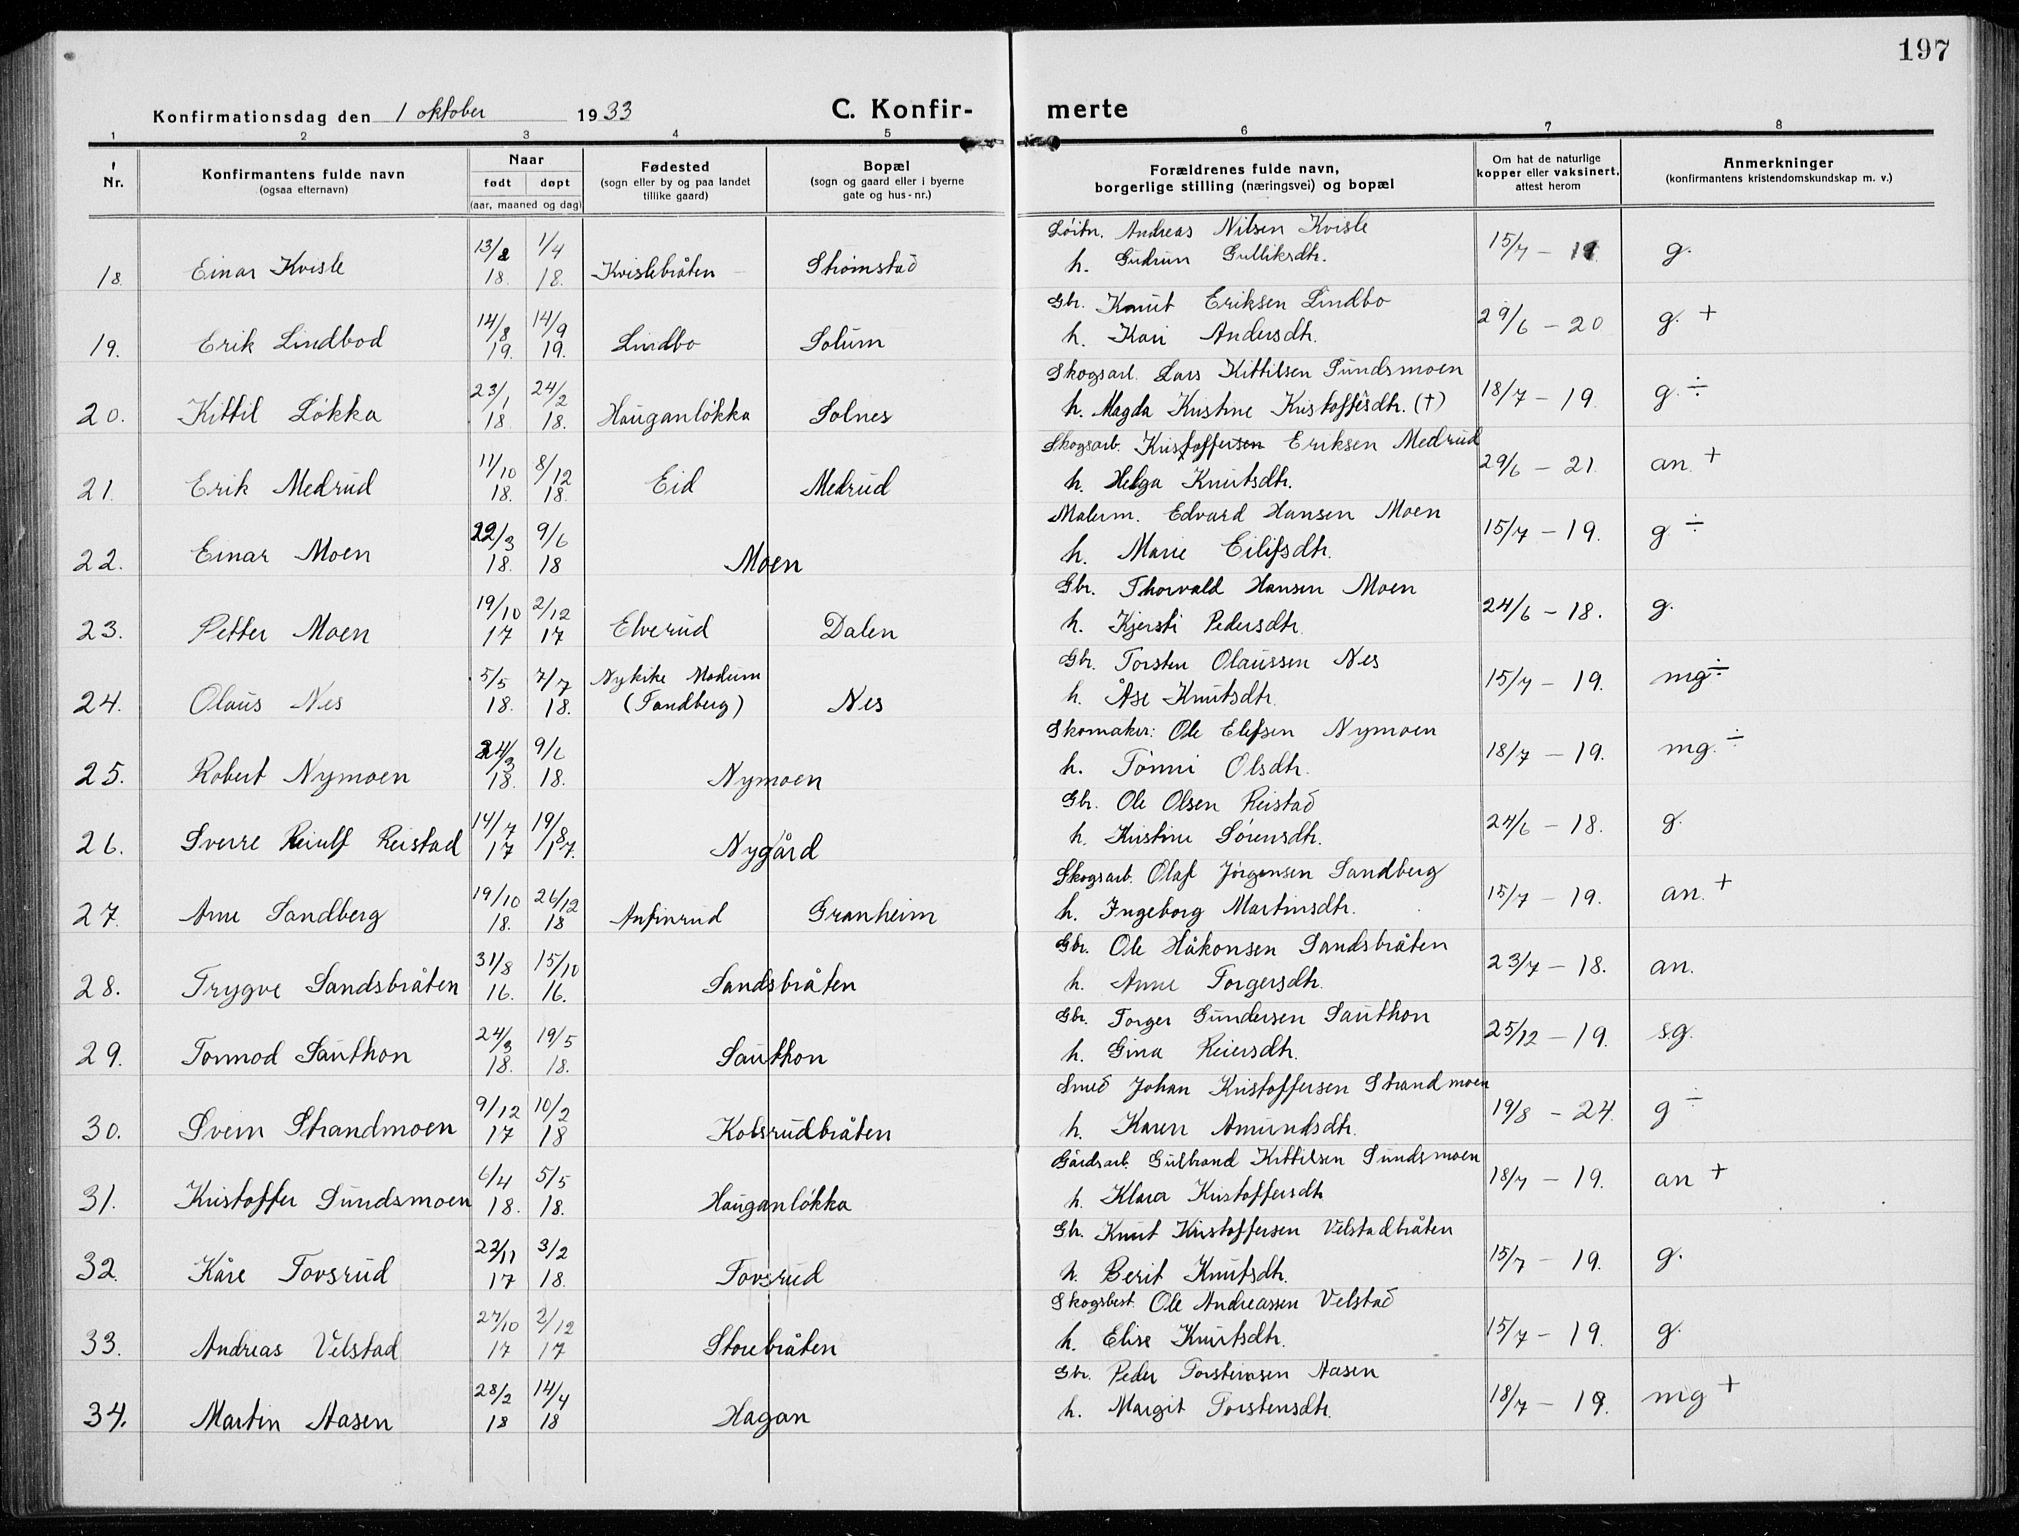 197
Konfirmationsdag den 1 oktober 1933
C. Konfir- merte
1 2 3 4 5 6 7 8
Nr.
Konfirmantens fulde navn
(ogsaa efternavn)
Naar
født døpt
(aar, maaned og dag)
Fødested
(sogn eller by og paa landet
tillike gaard)
Bopæl
(sogn og gaard eller i byerne
gate og hus-nr.)
Forældrenes fulde navn,
borgerlige stilling (næringsvei) og bopæl
Om hat de naturlige
kopper eller vaksinert,
attest herom
Anmerkninger
(konfirmantens kristendomskundskap m. v.)
18. Einar Kvisle 13/2 18. 1/4 18. Kvislebråten Strømstad
Løitn. Andreas Nilsen Kvisle
h. Gudrun Gulliksdtr. 15/7 - 19 g.
19. Erik Lindbod 14/8 19. 14/9 19. Lindbo Solum
Gbr. Knut Eriksen Lindbo
h. Kari Andersdtr. 29/6 - 20 g. +
20. Kittil Løkka 23/1 18 24/2 18. Hauganløkka Solnes
Skogsarb. Lars Kittilsen Sundsmoen
h. Magda Kristine Kristoffersdtr. (†) 18/7 - 19. g. ÷
21. Erik Medrud 11/10 18. 8/12 18. Eid Medrud
Skogsarb. Kristoffersen Eriksen Medrud
h. Helga Knutsdtr. 29/6 - 21. an. +
22. Einar Moen 22/3 18. 9/6 18 Moen
Malerm. Edvard Hansen Moen
h. Marie Eilifsdtr. 15/7 - 19. g ÷
23. Petter Moen 19/10 17 2/12 17 Elverud Dalen
Gbr. Thorvald Hansen Moen
h. Kjersti Pedersdtr. 24/6 - 18. g.
24. Olaus Nes 5/5 18. 7/7 18. Nykirke Modum (Sandberg) Nes
Gbr. Torsten Olaussen Nes
h. Åse Knutsdtr. 15/7 - 19. mg ÷
25. Robert Nymoen 24/3 18. 9/6 18. Nymoen
Skomaker: Ole Elefsen Nymoen
h. Tønni Olsdtr. 18/7 - 19. mg. ÷
26. Sverre Reiulf Reistad 14/7 17 19/8 17. Nygård
Gbr. Ole Olsen Reistad
h. Kristine Sørensdtr. 24/6 - 18. g.
27. Arne Sandberg 19/10 18. 26/12 18 Anfinrud Granheim
Skogsarb. Olaf Jørgensen Sandberg
h. Ingeborg Martinsdtr. 15/7 - 19. an. +
28. Trygve Sandsbråten 31/8 16. 15/10 16. Sandsbråten
Gbr. Ole Håkonsen Sandsbråten
h. Anne Torgersdtr. 23/7 - 18. an.
29. Tormod Sauthon 24/3 18. 19/5 18. Sauthon
Gbr. Torger Gundersen Sauthon
h. Gina Reiersdtr. 25/12 - 19. sg.
30. Svein Strandmoen 9/12 17 10/2 18 Kolsrudbråten
Smed Johan Kristoffersen Strandmoen
h. Karen Amundsdtr. 19/8 - 24. g ÷
31. Kristoffer Sundsmoen 6/4 18. 5/5 18. Hauganløkka
Gårdsarb. Gulbrand Kittilsen Sundsmoen
h. Klara Kristoffersdtr 18/7 - 19. an +
32. Kåre Tovsrud 22/11 17 3/2 18. Tovsrud
Gbr. Knut Kristoffersen Velstadbråten
h. Berit Knutsdtr. 15/7 - 19. g.
33. Andreas Velstad 27/10 17 2/12 17 Storebråten
Skogsbest. Ole Andreassen Velstad
h. Elise Knutsdtr. 15/7 - 19. g.
34. Martin Aasen 28/2 18 14/4 18 Hagan
Gbr. Peder Torsteinsen Aasen
h. Margit Torstensdtr. 18/7 - 19. mg +